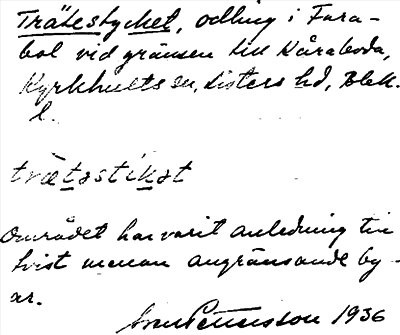 Trätestycket, odling i Fara-
bol vid gränsen till Kåraboda,
Kyrkhults sn, Listers hd, Blek.
l.
trætəstikət
Området har varit anledning till
tvist mellan angränsande by-
ar.
Pettersson 1936